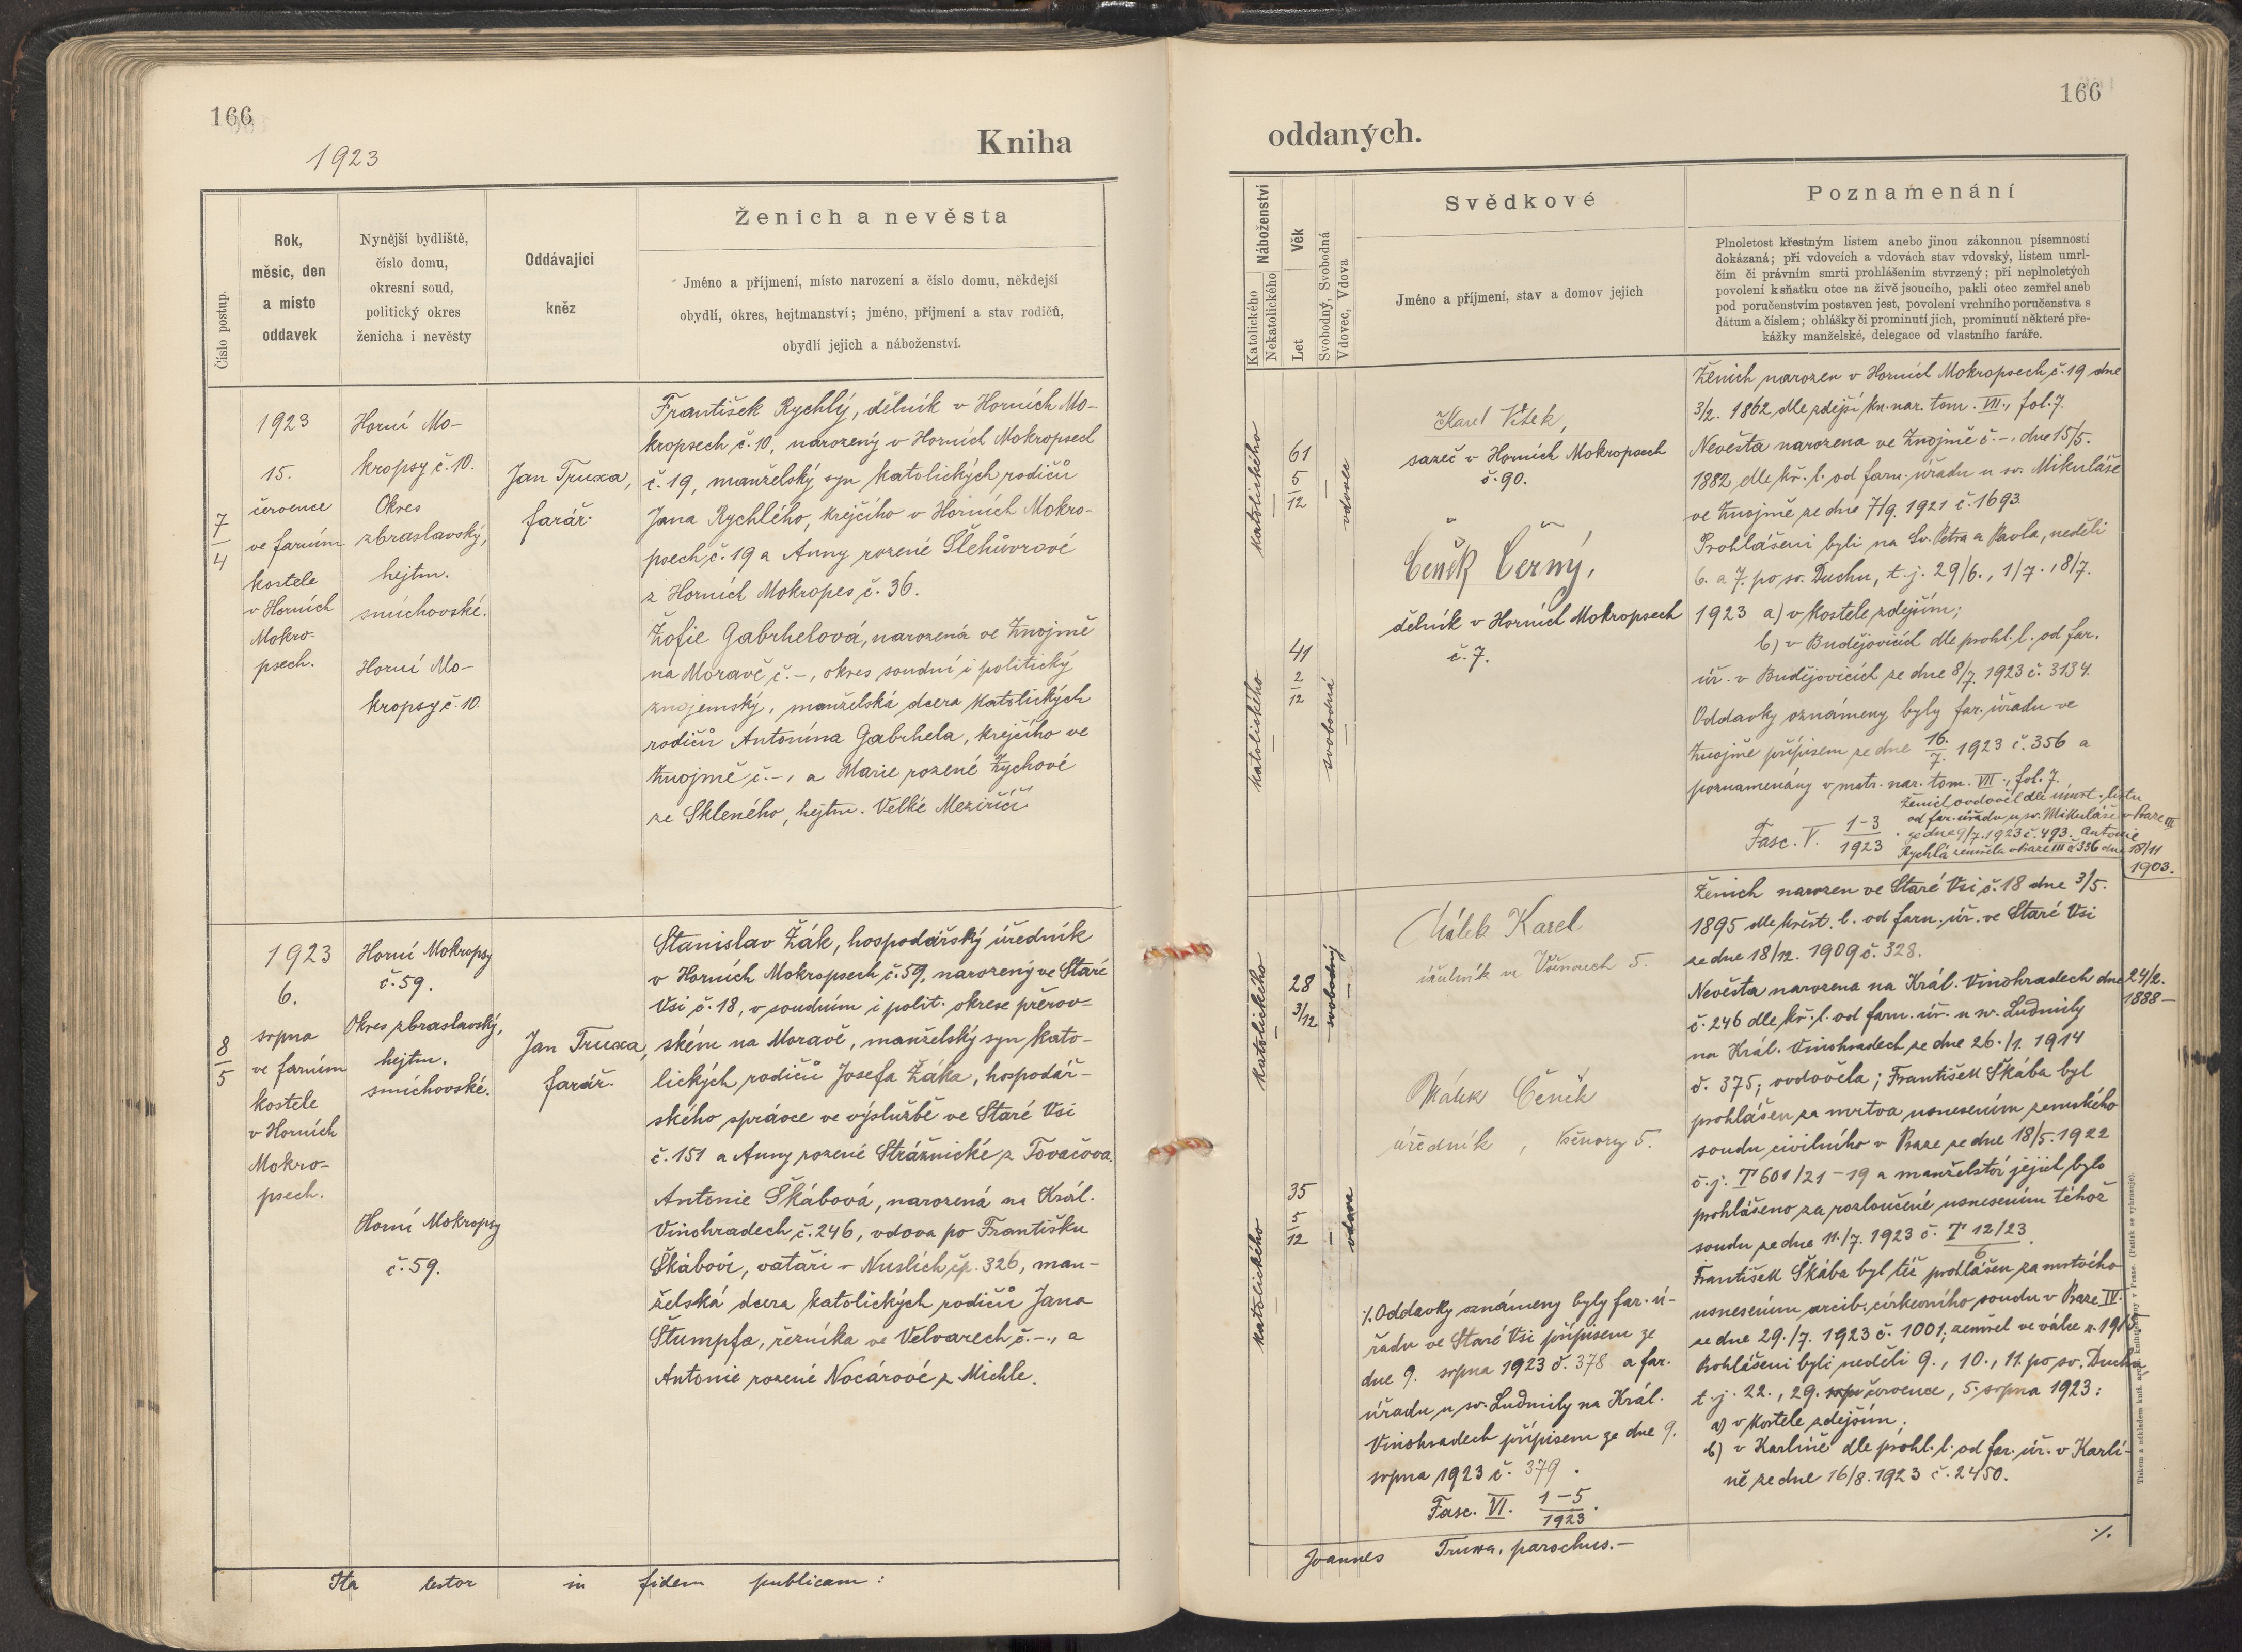 166
1923
Kniha
Číslo postup.
Rok,
měsíc, den
a místo
oddavek
Nynější bydliště,
číslo domu,
okresní soud,
politický okres
ženicha i nevěsty
Oddávající
kněz
Ženich a nevěsta
Jméno a příjmení, místo narození a číslo domu, někdejší
obydlí, okres, hejtmanství; jméno, příjmení a stav rodičů,
obydlí jejich a náboženství.
7
4
1923
15.
července
ve farním
kostele
v Horních
Mokro-
psech.
Horní Mo-
kropsy č. 10.
Okres
zbraslavský,
hejtm.
smíchovské.
Horní Mo-
kropsy č. 10
Jan Truxa,
farář.
František Rychlý, dělník v Horních Mo-
kropsech č. 10, narozený v Horních Mokropsech
č. 19, manželský syn katolických rodičů
Jana Rychlého, krejčího v Horních Mokro-
psech č. 19 a Anny rozené Šlehůvrové
z Horních Mokropes č. 36.
Žofie Gabrhelová, narozená ve Znojmě
na Moravě č. –, okres soudní i politický
znojemský, manželská dcera katolických
rodičů Antonína Gabrhela, krejčího ve
Znojmě č. –, a Marie rozené Zychové
ze Skleného, hejtm. Velké Meziříčí
8
5
1923
6.
srpna
ve farním
kostele
v Horních
Mokro-
psech.
Horní Mokropsy
č. 59.
Okres zbraslavský,
hejtm.
smíchovské.
Horní Mokropsy
č. 59.
Jan Truxa,
farář.
Stanislav Žák, hospodářský úředník
v Horních Mokropsech č. 59, narozený ve Staré
Vsi č. 18, v soudním i polit. okrese přerov-
ském na Moravě, manželský syn kato-
lických rodičů Josefa Žáka, hospodář-
ského správce ve výslužbě ve Staré Vsi
č. 151 a Anny rozené Strážnické z Tovačova.
Antonie Škábová, narozená na Král.
Vinohradech č. 246, vdova po Františku
Škábovi, vataři v Nuslích čp. 326, man-
želská dcera katolických rodičů Jana
Štumpfa, řezníka ve Velvarech č. –, a
Antonie rozené Nocárové z Michle.
Ita testor in fidem publicam:
166
oddaných.
Katolického
Nekatolického
Náboženství
Věk
Let
Svobodný, Svobodná
Vdovec, Vdova
Svědkové
Jméno a příjmení, stav a domov jejich
Poznamenání
Plnoletost křestným listem anebo jinou zákonnou písemností
dokázaná; při vdovcích a vdovách stav vdovský, listem umrl-
čím či právním smrti prohlášením stvrzený; při neplnoletých
povolení k sňatku otce na živě jsoucího, pakli otec zemřel aneb
pod poručenstvím postaven jest, povolení vrchního poručenstva s
dátum a číslem; ohlášky či prominutí jich, prominutí některé pře-
kážky manželské, delegace od vlastního faráře.
katolického
–
61
5
12
–
vdovec
katolického
–
41
2
12
svobodná
–
Karel Vítek,
sazeč v Horních Mokropsech
č. 90.
Čeněk Černý,
dělník v Horních Mokropsech
č. 7.
Ženich narozen v Horních Mokropsech č. 19 dne
3/2. 1862 dle zdejší kn. nar. tom. VII., fol. 7.
Nevěsta narozena ve Znojmě č. –, dne 15/5.
1882 dle kř. l. od farn. úřadu u sv. Mikuláše
ve Znojmě ze dne 7/9. 1921 č. 1693
Prohlášeni byli na Sv. Petra a Pavla, neděli
6. a 7. po sv. Duchu, t. j. 29/6., 1/7., 8/7.
1923 a) v kostele zdejším;
b) v Budějovicích dle prohl. l. od far.
úř. v Budějovicích ze dne 8/7. 1923 č. 3134.
Oddavky oznámeny byly far. úřadu ve
Znojmě přípisem ze dne 16./7. 1923 č. 356 a
poznamenány v matr. nar. tom. VII., fol. 7.
Fasc. V. 1–3
1923
Ženich ovdověl dle úmrt. listu
od far. úřadu u sv. Mikuláše v Praze III
ze dne 9/7. 1923 č. 493. Antonie
Rychlá zemřela v Praze III č 336 dne 18/11
1903.
katolického
–
28
3/12
svobodný
–
katolického
–
35
5
12
–
vdova
Málek Karel
úředník ve Všenorech 5.
Málek Čeněk
úředník, Všenory 5.
⁒ Oddavky oznámeny byly far. ú-
řadu ve Staré Vsi přípisem ze
dne 9. srpna 1923 č. 378 a far.
úřadu u sv. Ludmily na Král.
Vinohradech přípisem ze dne 9.
srpna 1923 č. 379.
Fasc. VI. 1–5
1923.
Ženich narozen ve Staré Vsi č. 18 dne 3/5.
1895 dle křest. l. od farn. úř. ve Staré Vsi
ze dne 18/12. 1909 č. 328.
Nevěsta narozena na Král. Vinohradech dne 24/2.
1888 –
č. 246 dle kř. l. od farn. úř. u sv. Ludmily
na Král. Vinohradech ze dne 26./1. 1914
č. 375; ovdověla; František Škába byl
prohlášen za mrtva usnesením zemského
soudu civilního v Praze ze dne 18/5. 1922
č. j. T 601/21–19 a manželství jejich bylo
prohlášeno za rozloučené usnesením téhož
soudu ze dne 11./7. 1923 č. T 12/23.
6
František Škába byl též prohlášen za mrtvého
usnesením arcib. církevního soudu v Praze IV.
ze dne 29./7. 1923 č. 1001; zemřel ve válce r. 1915
Prohlášeni byli neděli 9., 10., 11. po sv. Duchu,
t. j. 22., 29. srpn července, 5. srpna 1923:
a) v kostele zdejším.
b) v Karlíně dle prohl. l. od far. úř. v Karlí-
ně ze dne 16/8. 1923 č. 2450.
⁒
Joannes Truxa, parochus. –